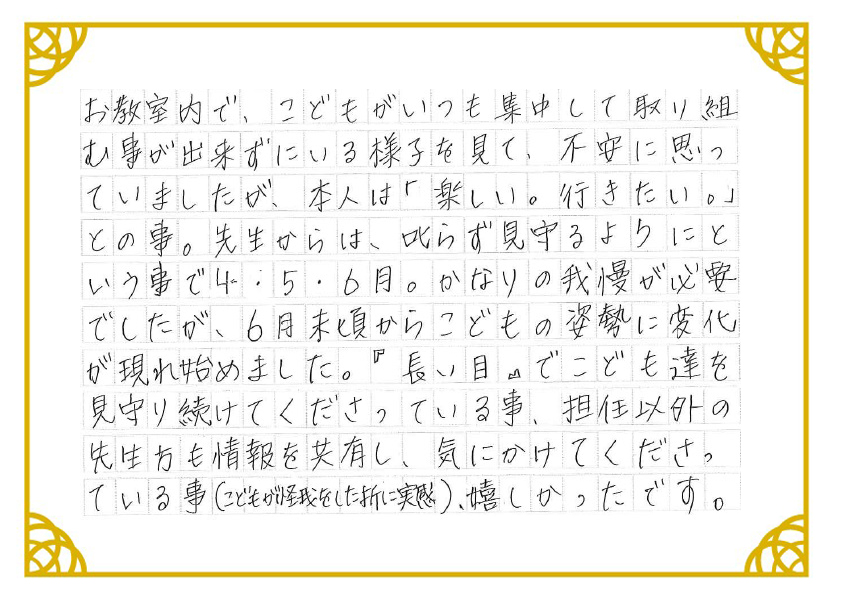 お教室内で、こどもがいつも集中して取り組
む事が出来ずにいる様子を見て、不安に思っ
ていましたが、本人は「楽しい。行きたい。」
との事。先生からは、叱らず見守るようにと
いう事で4・5・6月。かなりの我慢が必要
でしたが、6月末頃からこどもの姿勢に変化
が現れ始めました。『長い目』でこども達を
見守り続けてくださっている事、担任以外の
先生方も情報を共有し、気にかけてくださっ
ている事(こどもが怪我をした折に実感)、嬉しかったです。